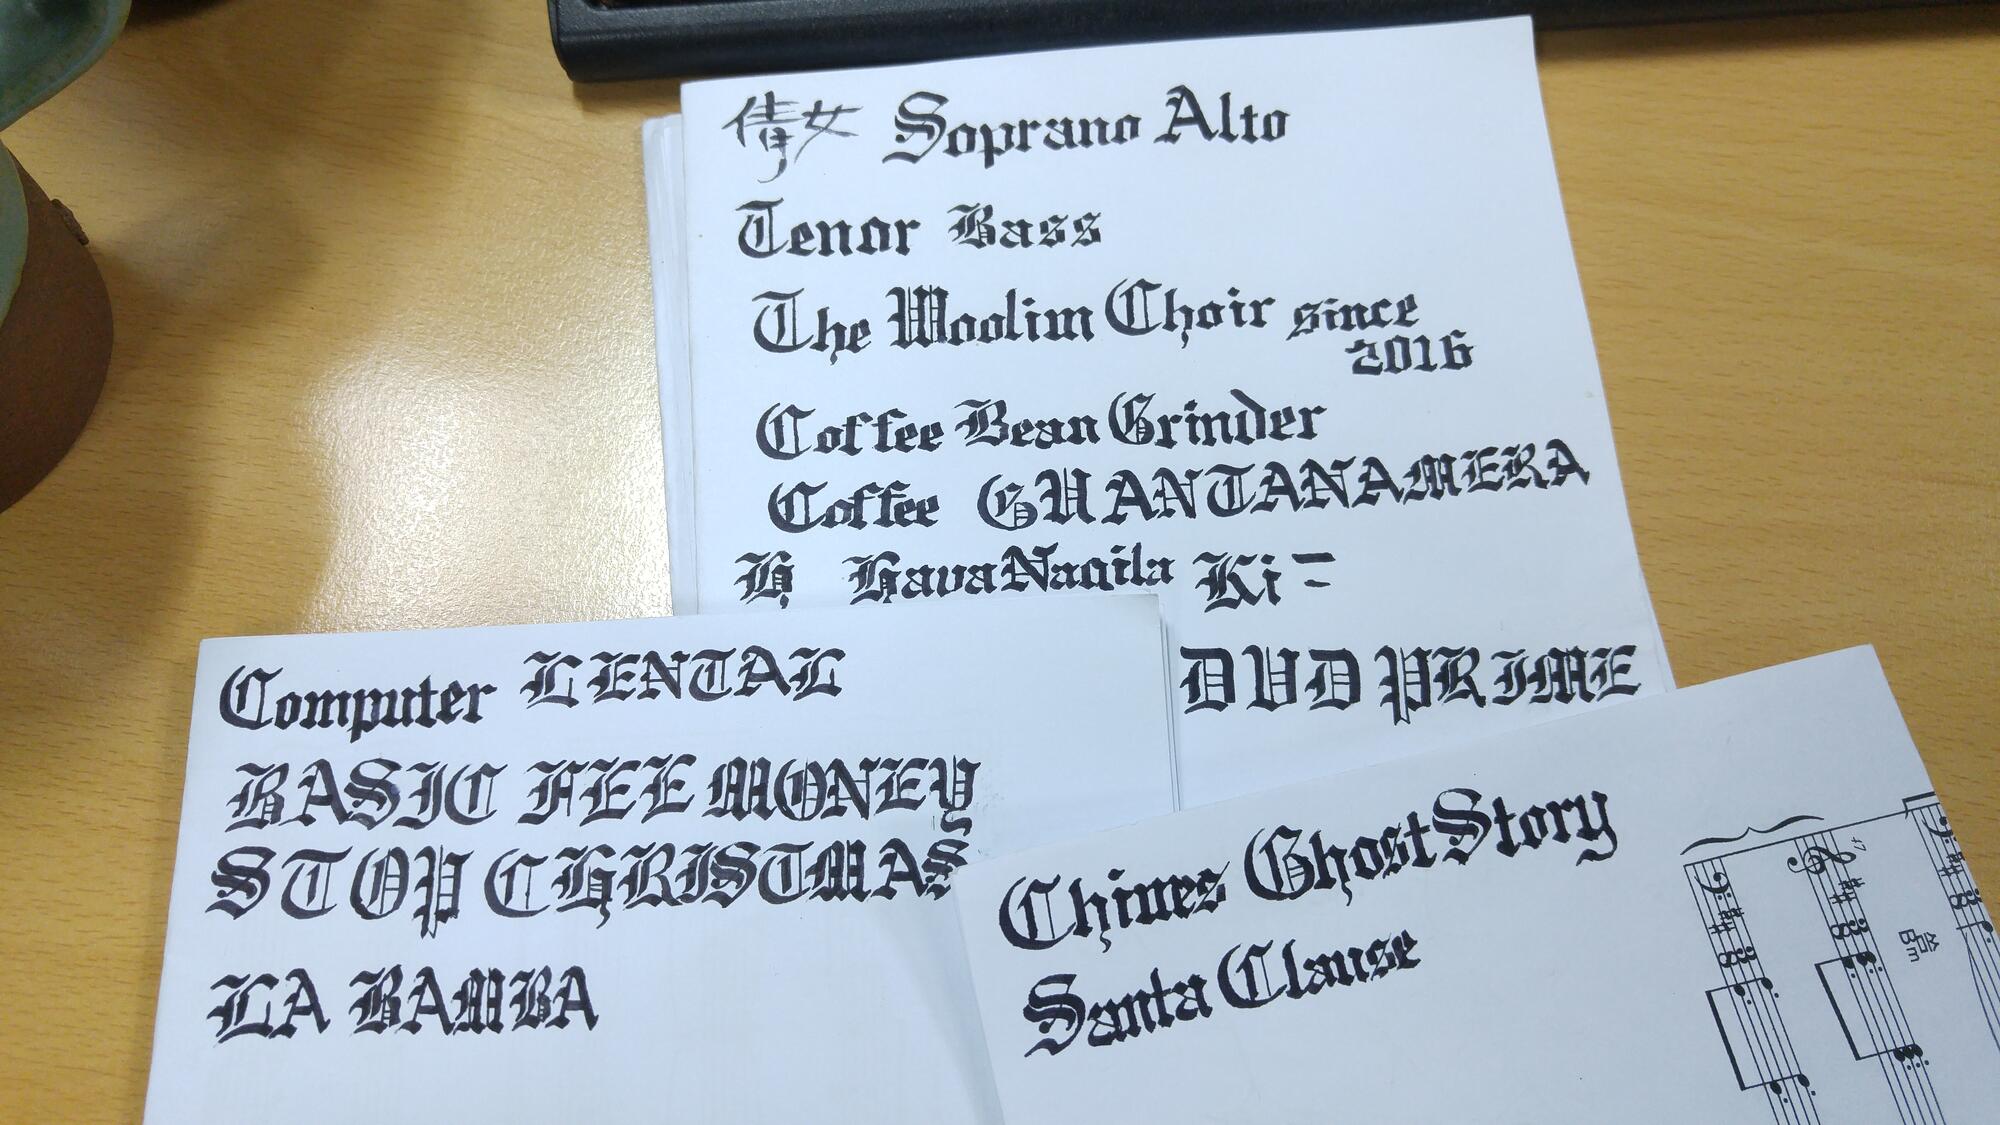 倩女 Soprano Alto
Tenor Bass
The Woolim Choir since
2016
Coffee Bean Grinder
Coffee GUANTANAMERA
H Hava Nagila Ki =
DVD PRIME
Computer LENTAL
BASIC FEE MONEY
STOP CHRISTMAS
LA BAMBA
Chines Ghost Story
Santa Clause
Bm